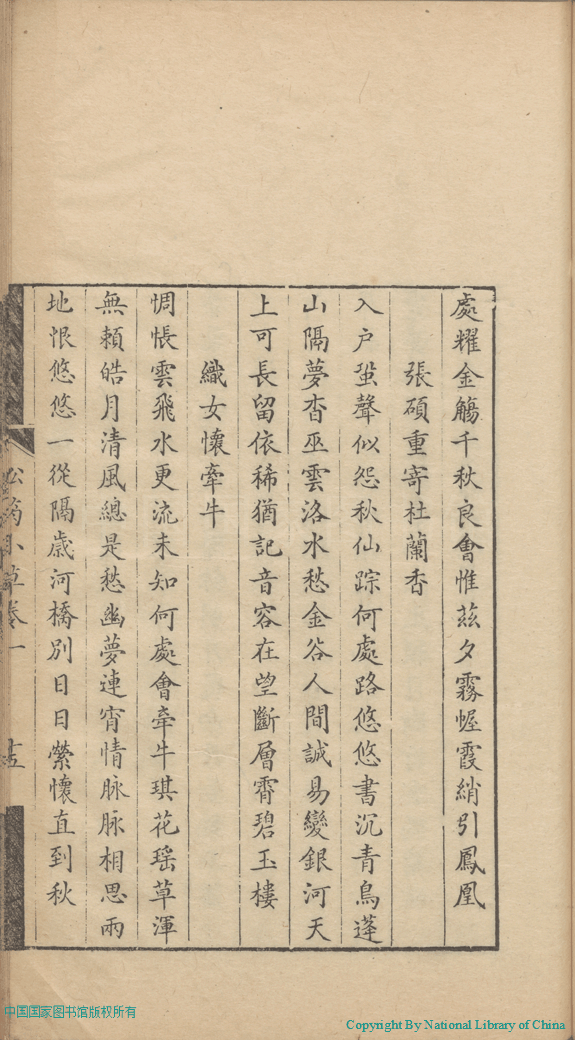 處耀金觴千秋良會惟茲夕霧幄霞綃引鳳凰
張碩重寄杜蘭香
入戶蛩聲似怨秋仙踪何處路悠悠書沉青鳥蓬
山隔夢杳巫雲洛水愁金谷人間誠易變銀河天
上可長留依稀猶記音容在望斷層霄碧玉樓
織女懷牽牛
惆悵雲飛水更流未知何處會牽牛琪花瑤草渾
無賴皓月清風總是愁幽夢連宵情脉脉相思兩
地恨悠悠一從隔歲河橋別日日縈懷直到秋
小草卷一
十五
中国国家图书馆版权所有
Copyright By National Library of China